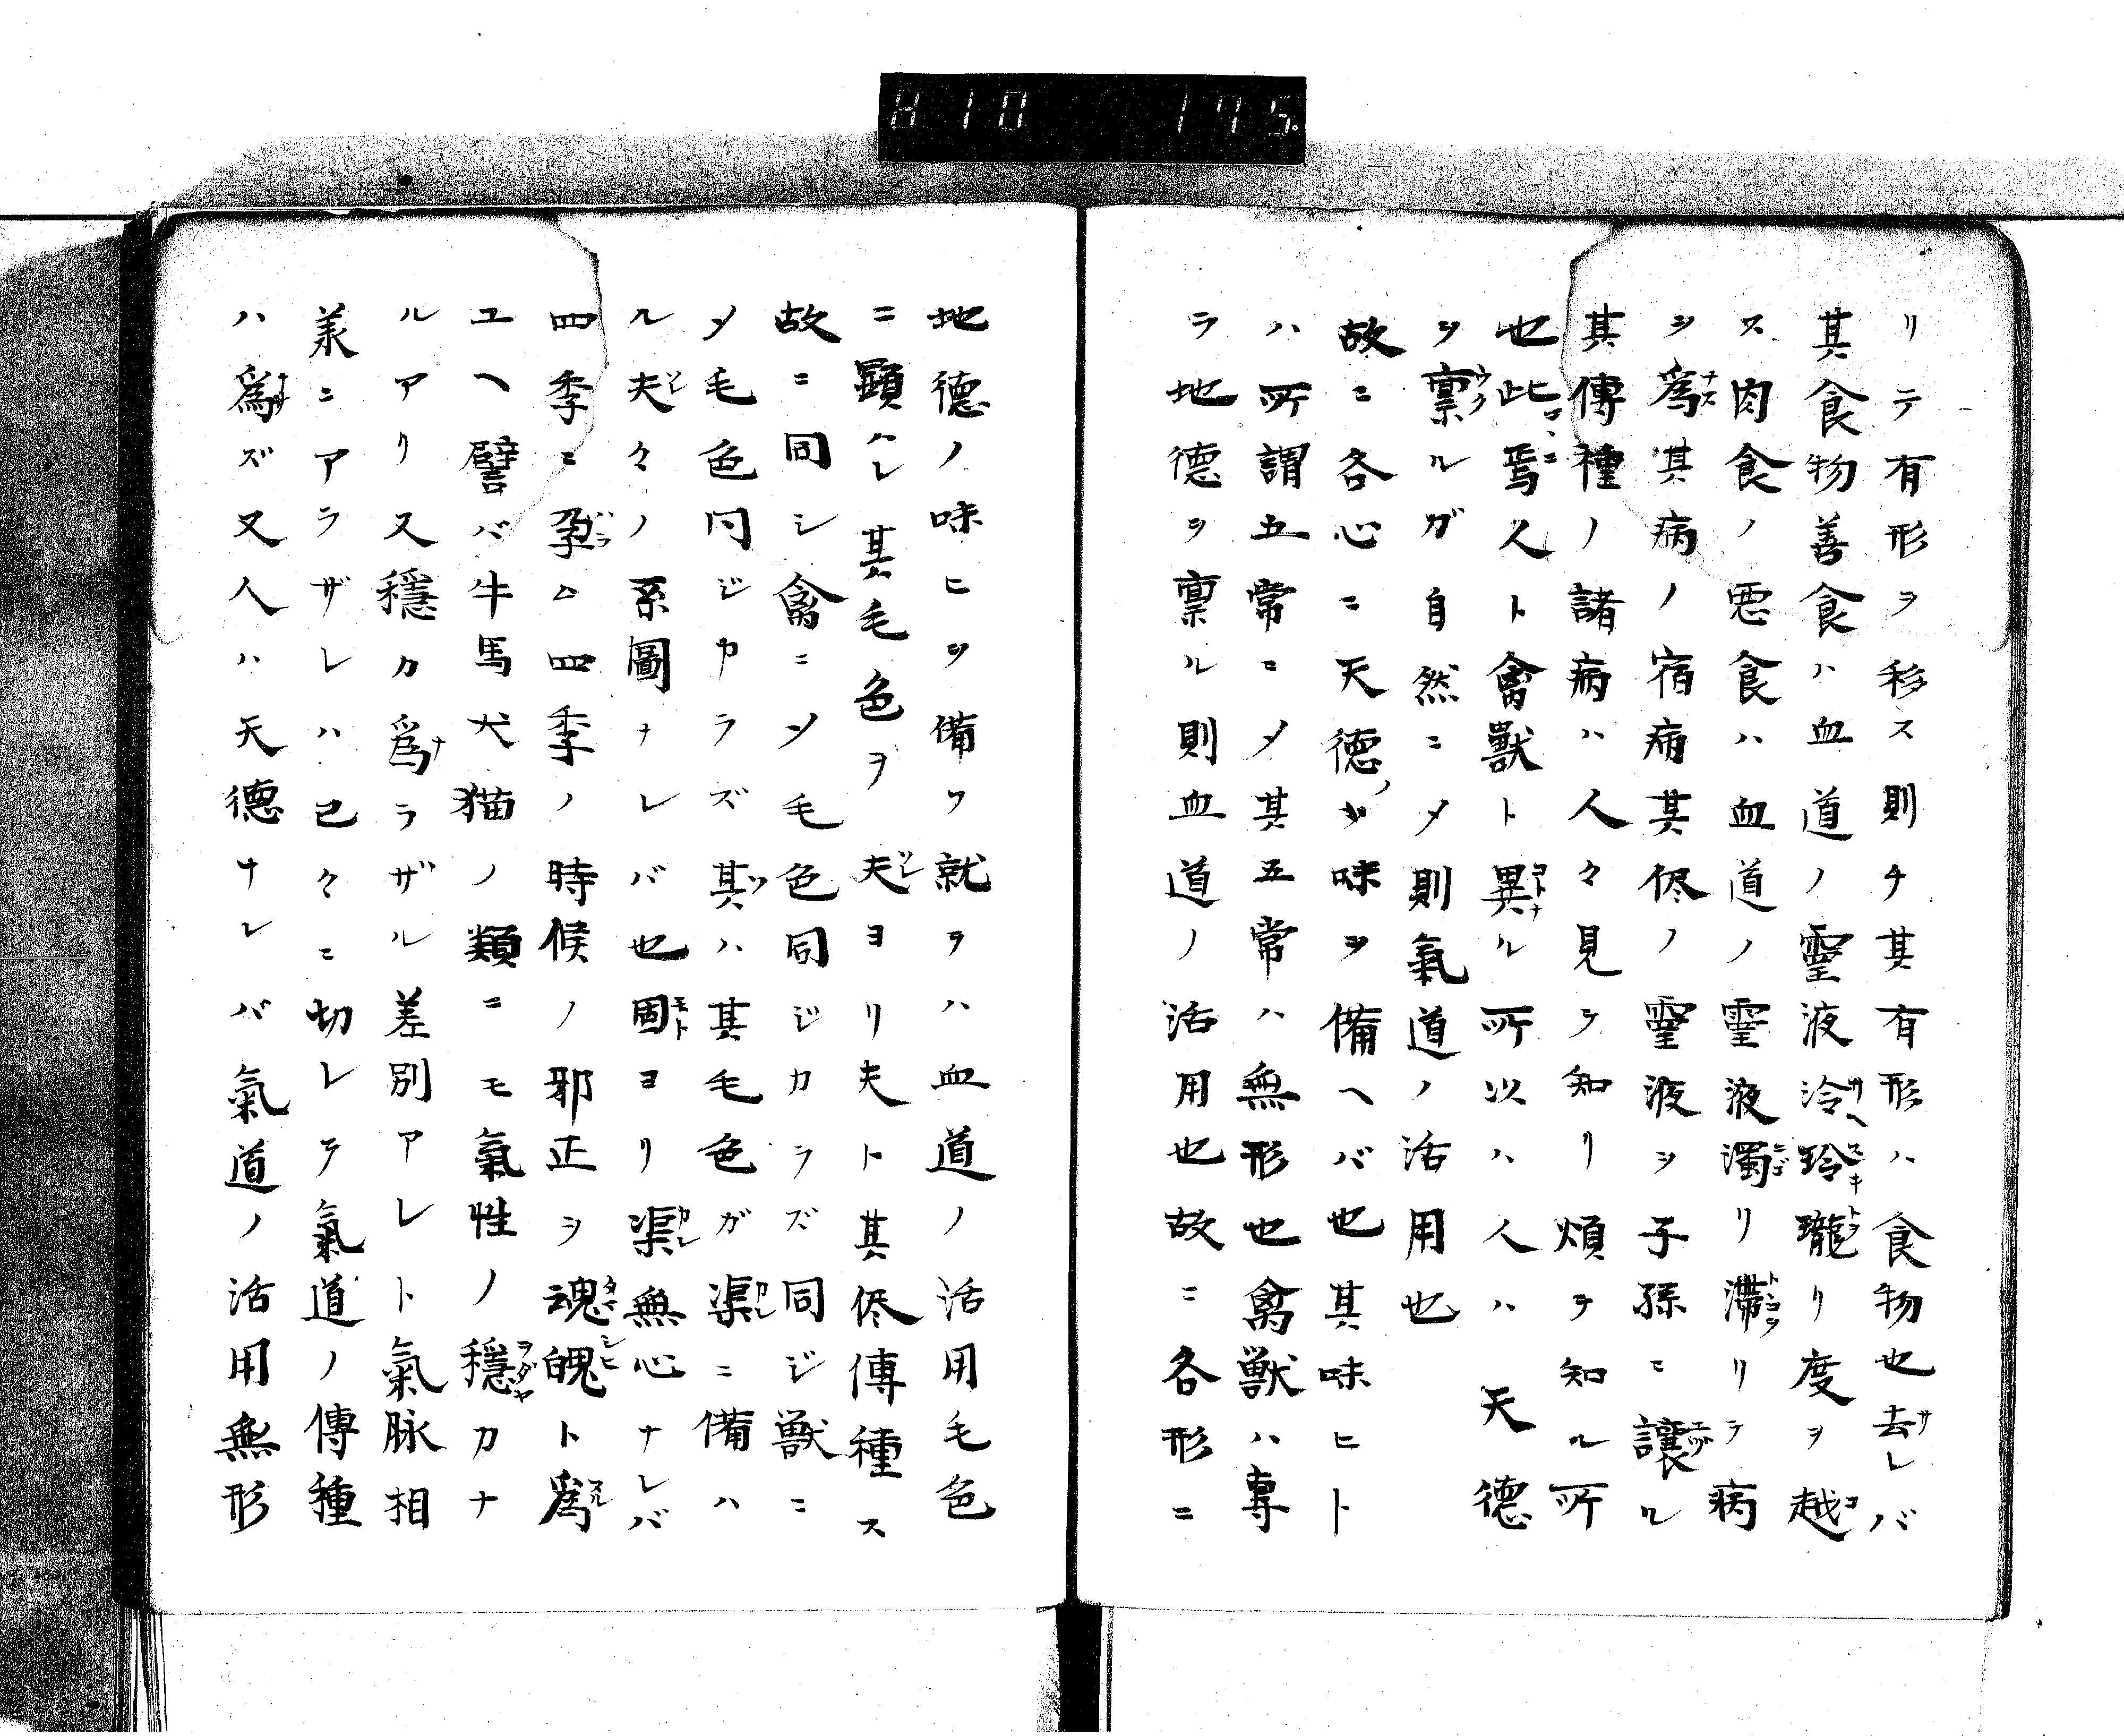 H10 175.
リテ有形ヲ移ス則チ其有形ハ食物也去レバ
其食物善食ハ血道ノ霊液冷玲瓏リ度ヲ越
ス肉食ノ悪食ハ血道ノ霊液濁リ滞リテ病
ヲ為其病ノ宿病其侭ノ霊液ヲ子孫ニ譲ル
其傳種ノ諸病ハ人々見テ知リ煩テ知ル所
也此焉人ト禽獸ト異ル所以ハ人ハ天德
ヲ禀ルガ自然ニ〆則氣道ノ活用也
故ニ各心ニ天徳ノ味ヲ備ヘバ也其味ヒト
ハ所謂五常ニ〆其五常ハ無形也禽獣ハ専
ラ地德ヲ禀ル則血道ノ活用也故ニ各形ニ
地德ノ味ヒヲ備フ就ヲハ血道ノ活用毛色
ニ顕ハレ其毛色ヲ夫ヨリ夫ト其侭傳種ス
故ニ同シ禽ニ〆毛色同ジカラズ同ジ獣ニ
〆毛色同ジカラズ其ハ其毛色ガ渠ニ備ハ
ル夫々ノ系圖ナレバ也固ヨリ渠無心ナレバ
四季ニ孕ム四季ノ時候ノ邪正ヲ魂魄ト為
ユヘ譬バ牛馬犬猫ノ類ニモ氣性ノ穏カナ
ルアリ又穏カ為ラザル差別アレト氣脉相
承ニアラザレハ己々ニ切レテ氣道ノ傳種
ハ為ズ又人ハ天德ナレバ氣道ノ活用無形